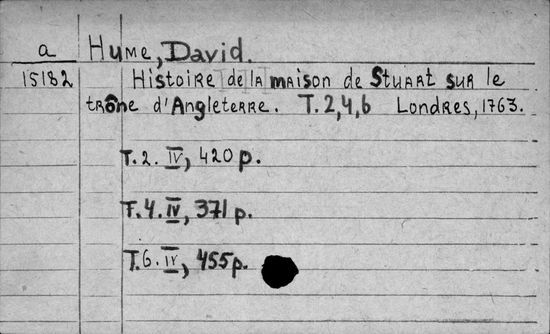 a Hume, David.
15182 Histoire de la maison de Stuart sur le
trône d'Angleterre. T.2,4,6 Londres, 1763.
T.2. IV, 420 p.
T.4. IV, 371 p.
T.6. IV, 455 p.